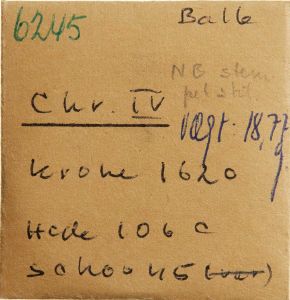 6245 Balle
NB stem
Chr. IV
vægt. 18,77 g.
Krone 1620
Hede 106 C
Schou 45 (var)